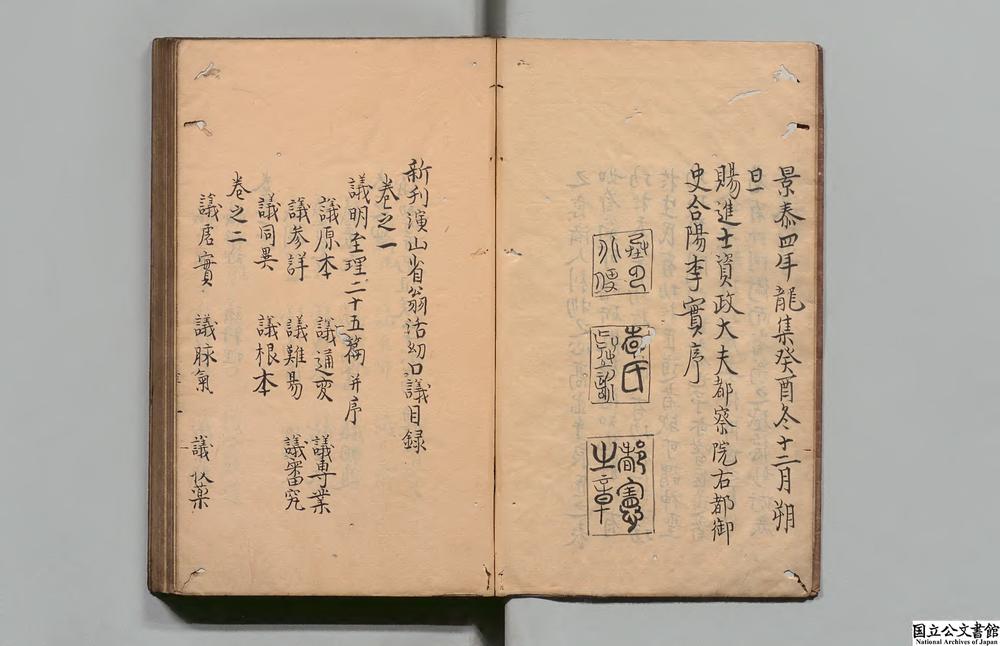 景泰四年龍集癸酉冬十二月朔
旦
賜進士資政大夫都察院右都御
史合陽李實序
李氏
都憲
之章
新刊演山省翁活幼口議目録
卷之一
議明至理二十五篇并序
議原本 議通變 議專業
議參詳 議難易 議審究
議同異 議根本
卷之二
議虚實 議脉氣 議伏藥
国立公文書館
National Archives of Japan